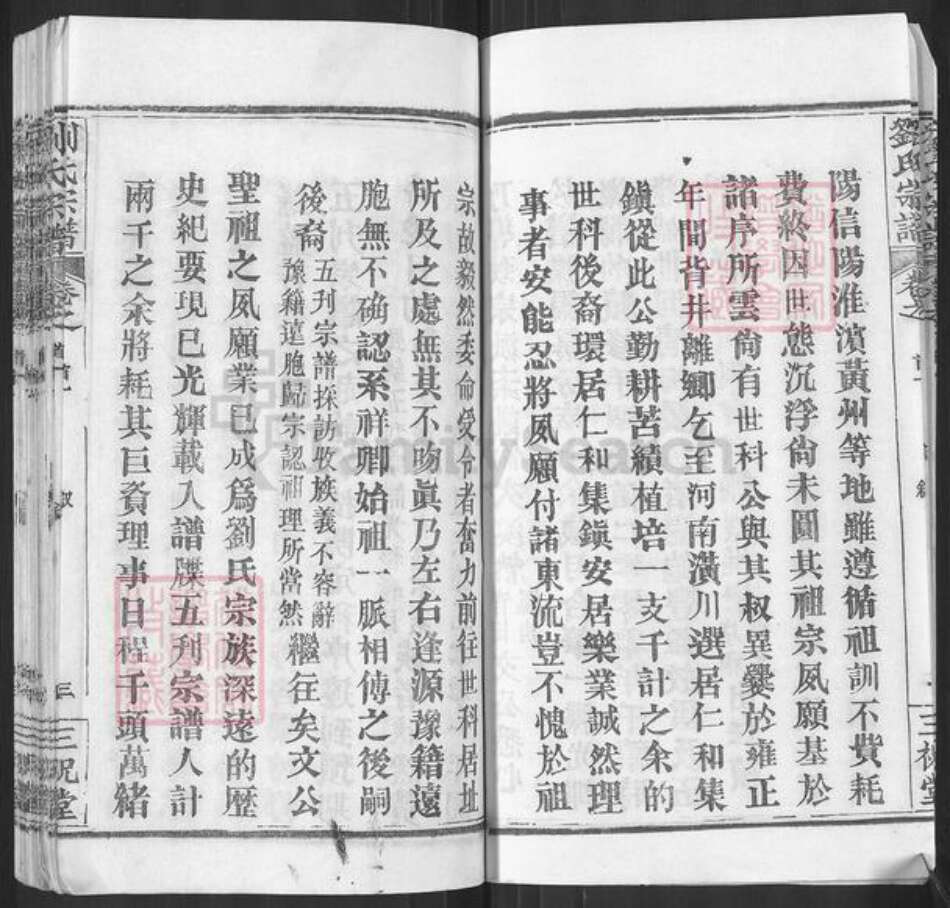 劉氏宗譜
陽信陽淮濱黃州等地雖遵循祖訓不費耗
費終因世態沉浮尙未圓其祖宗夙願基於
諸序所雲尙有世科公與其叔異爨於雍正
年間背井離鄉乞至河南潢川選居仁和集
鎮從此公勤耕苦績植培一支千計之余的
世科後裔環居仁和集鎮安居樂業誠然理
事者安能忍將夙願付諸東流豈不愧於祖
宗故毅然委命受令者奮力前往世科居址
所及之處無其不吻眞乃左右逢源豫籍遠
胞無不确認系祥卿始祖一脈相傳之後嗣
後裔 五刋宗譜採訪收族義不容辭
豫籍遠胞歸宗認祖理所當然 繼往矣文公
聖祖之夙願業已成爲劉氏宗族深遠的歷
史紀要現已光輝載入譜牒五刋宗譜人計
兩千之余將耗其巨資理事日程千頭萬緒
劉氏宗譜
卷之首
叙
三
三祝堂
FamilySearch